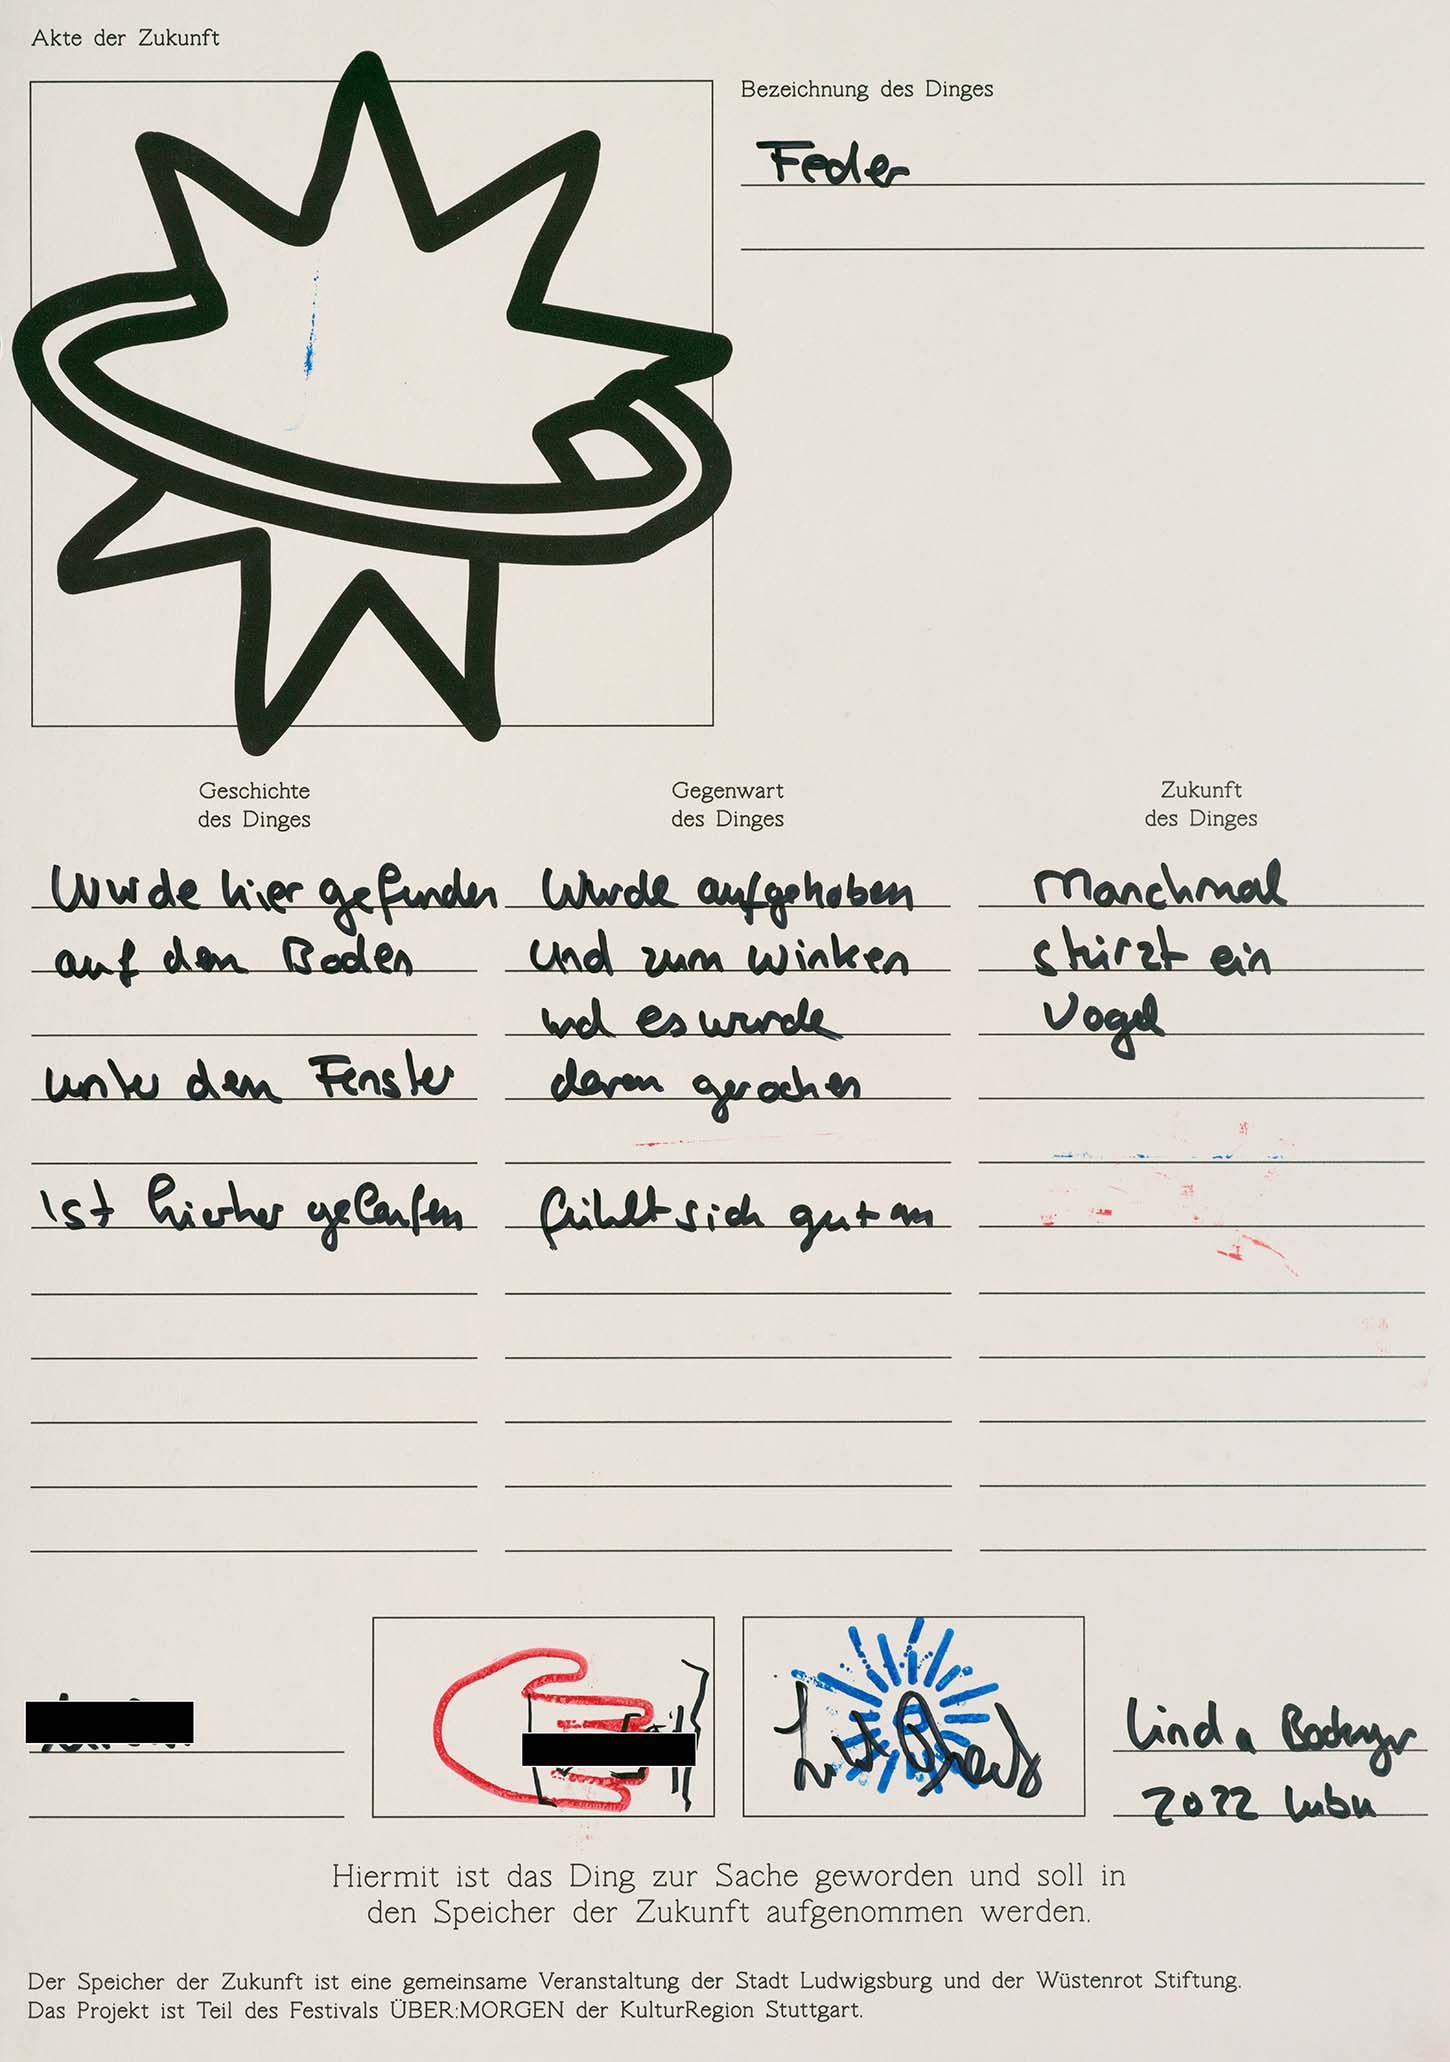 Akte der Zukunft
Bezeichnung des Dinges
Feder
Geschichte
des Dinges
Gegenwart
des Dinges
Zukunft
des Dinges
Wurde hier gefunden
auf dem Boden
unter dem Fenster
ist hierher gelaufen
Wurde aufgehoben
und zum Winken
und es wurde
daran gerochen
fühlt sich gut an
Manchmal
stürzt ein
Vogel
Linda
2022 lubu
Hiermit ist das Ding zur Sache geworden und soll in
den Speicher der Zukunft aufgenommen werden.
Der Speicher der Zukunft ist eine gemeinsame Veranstaltung der Stadt Ludwigsburg und der Wüstenrot Stiftung.
Das Projekt ist Teil des Festivals ÜBER:MORGEN der KulturRegion Stuttgart.